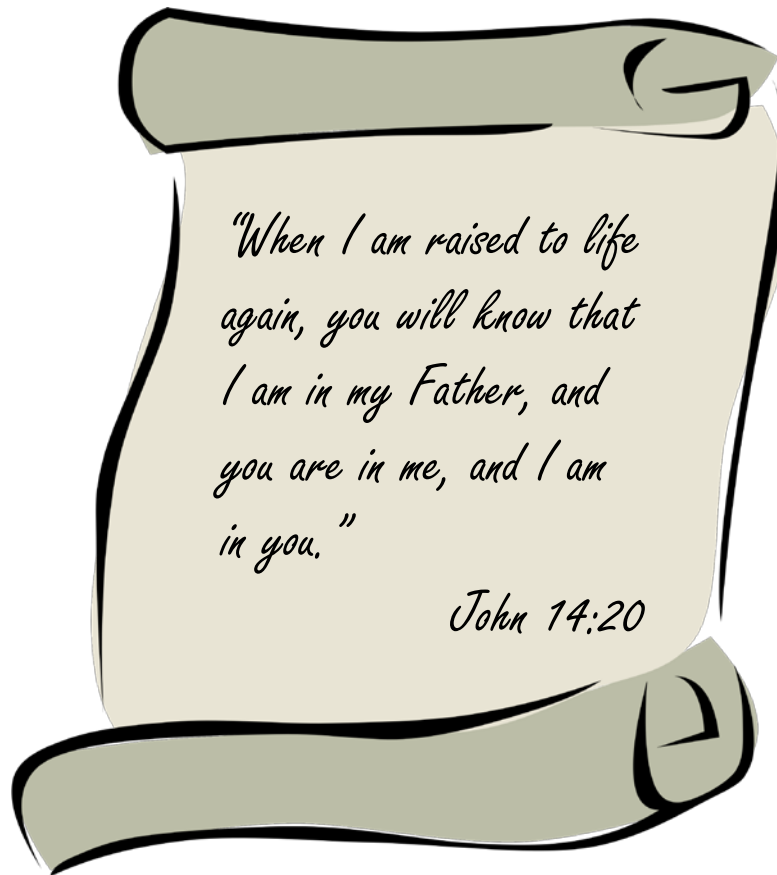 “When I am raised to life
again, you will know that
I am in my Father, and
you are in me, and I am
in you.”
John 14:20